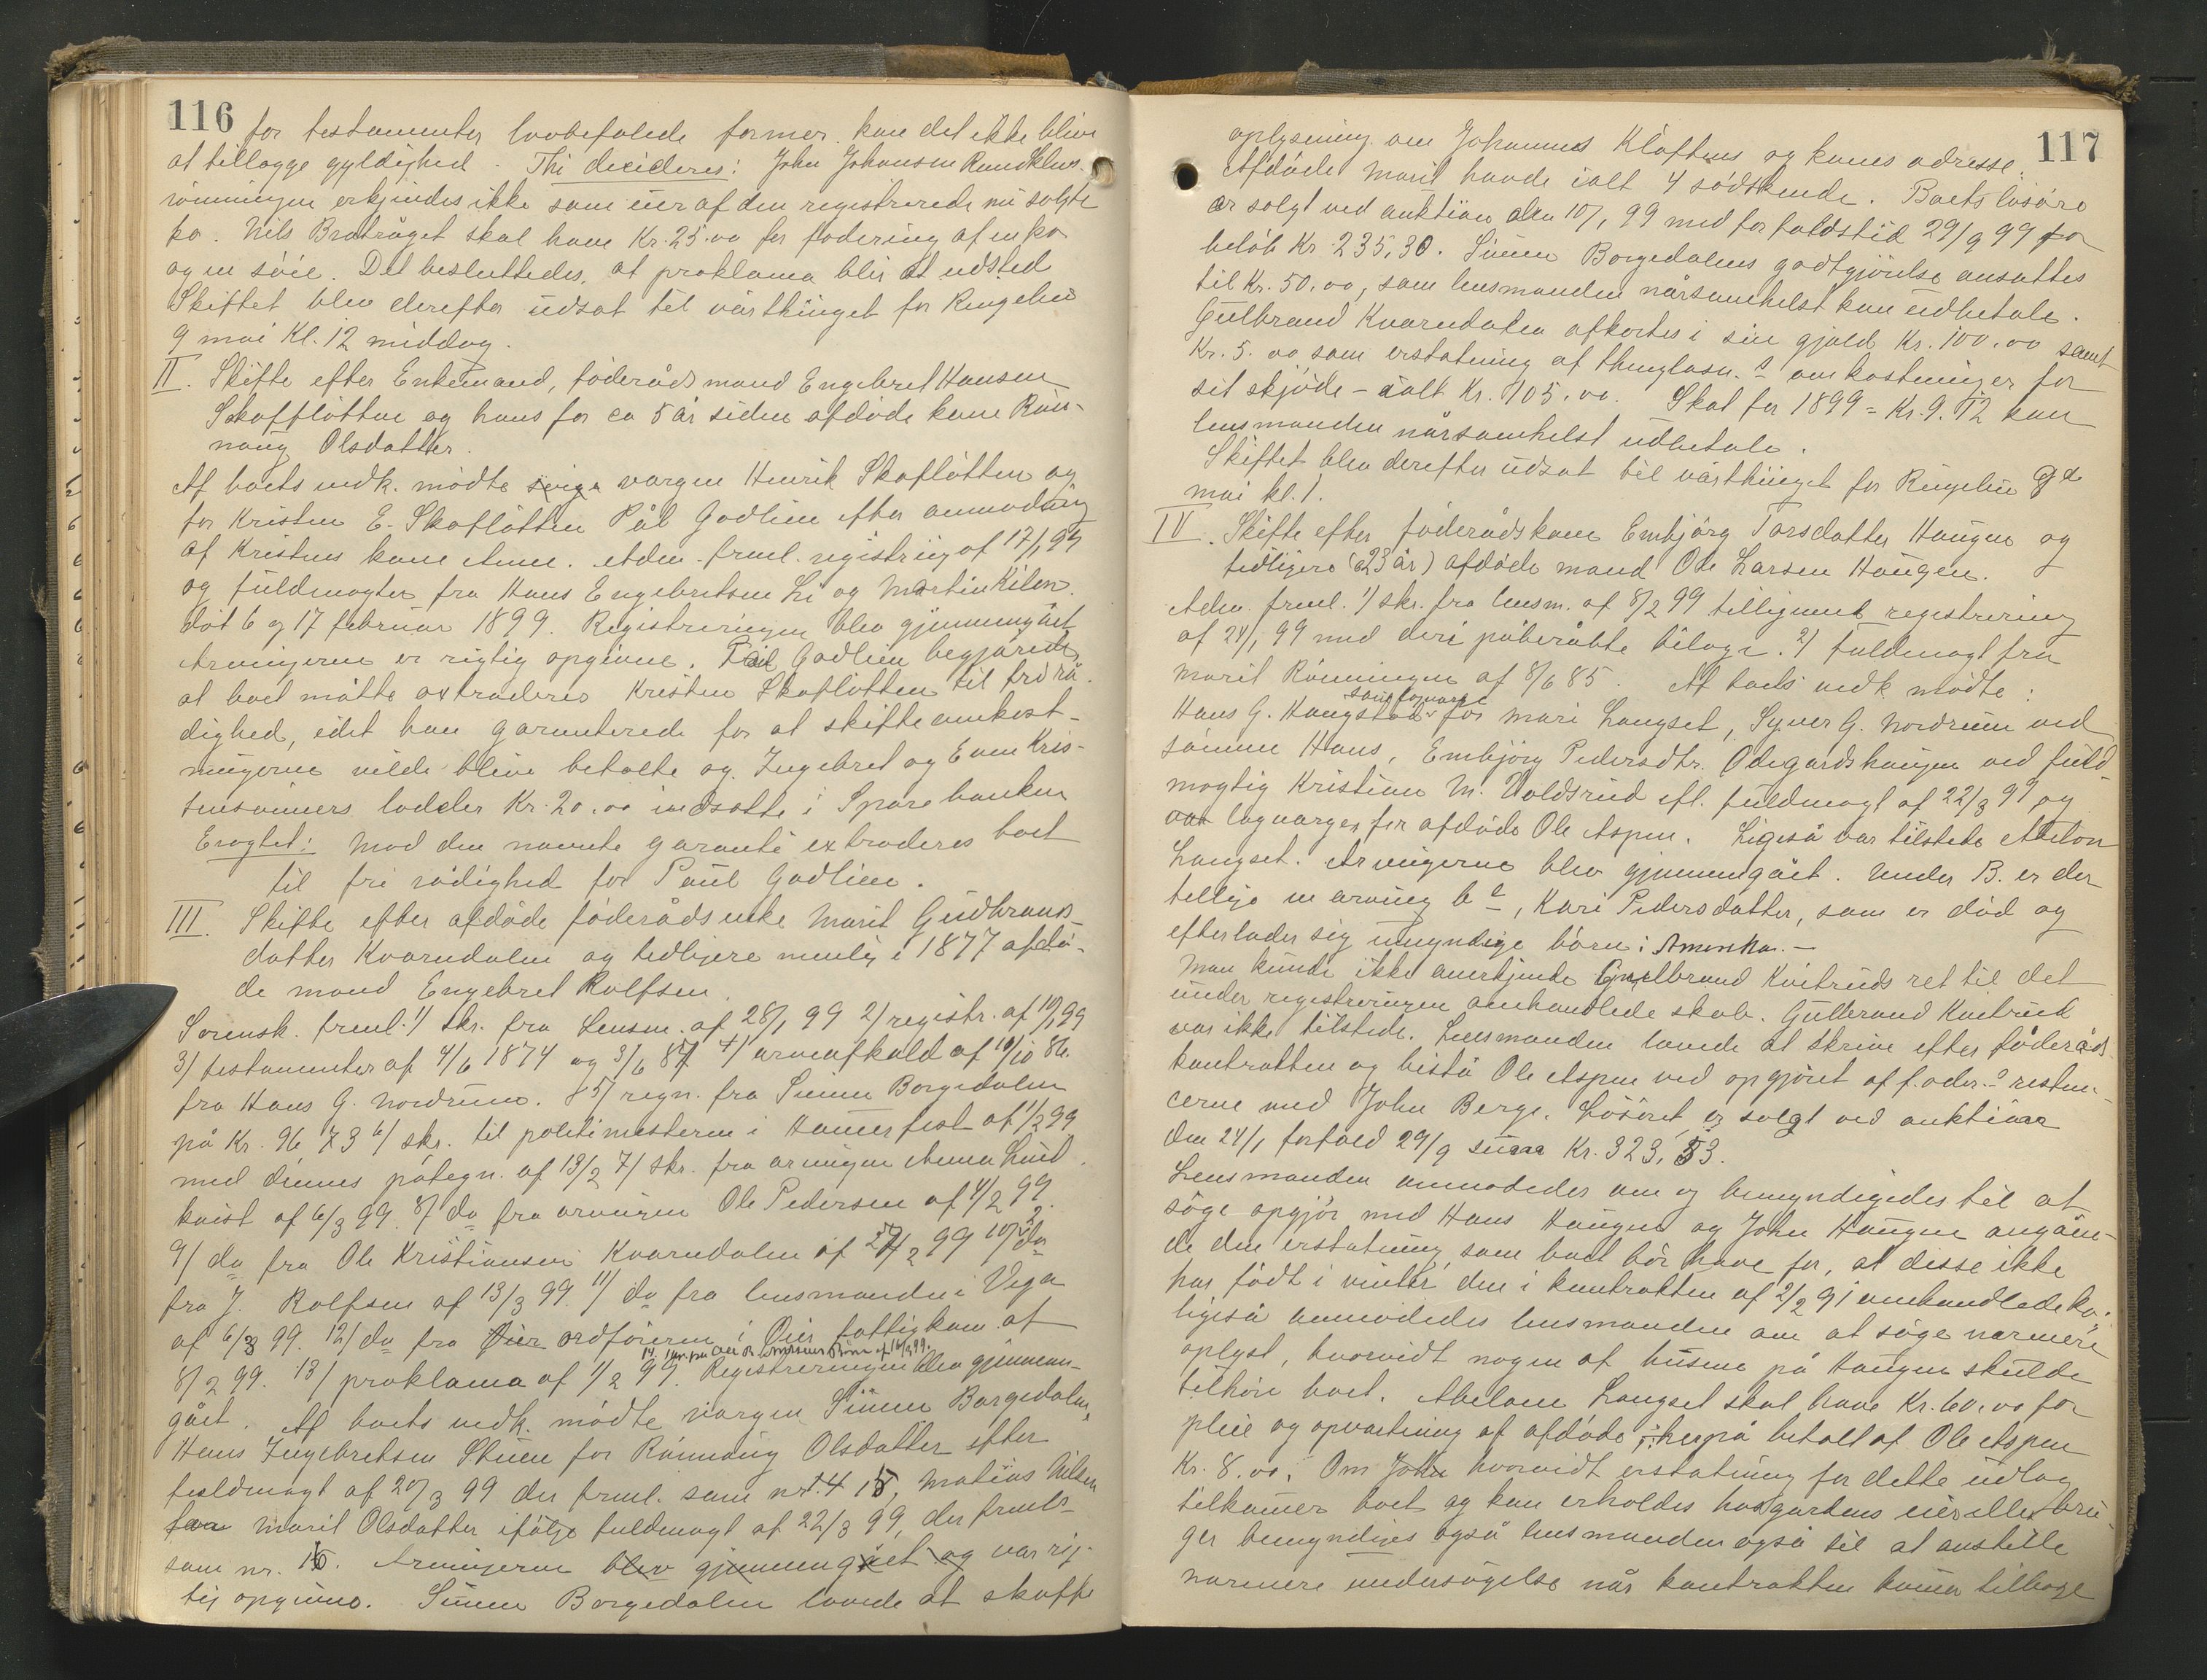 116
for testamenter lovbefalede former kan det ikke blive
at tillægge gyldighed. Thi decideres: John Johansen
rönningen erkjendes ikke som eier af den registrerede nu solgte
ko. Nils Bratråget skal have Kr. 25.00 for fodering af en ko
og en söie. Det besluttedes, at proklama blir at udsted
Skiftet blev derefter udsat til vårthinget for Ringebu
9 mai Kl. 12 middag.
II. Skifte efter Enkemand, föderådsmand Engebret Hansen
Skaflötten og hans for ca 5 år siden afdöde kone Rön-
naug Olsdatter.
Af boets vedk. mödte værgen Henrik Skaflötten og
for Kristen E. Skaflötten Pål Godlien efter anmodning
af Kristens kone Anne. Adm. freml. registrrig af 17/1 99
og fuldmagter fra Hans Engebretsen Li og Martin Kilen
dat 6 og 17 februar 1899. Registreringen blev gjennemgået
Arvingerne er rigtig opgivne. Paul Godlien begjærede,
at boet måtte extraderes Kristen Skaflötten til fri rå-
dighed, idet han garanterede for at skifteomkost-
ningerne vilde blive betalte og Ingebret og Even Kris-
tensönners lodder Kr. 20.00 indsatte i Sparebanken
Eragtet: Mod den nævnte garanti extraderes boet
til fri rådighed for Paul Godlien.
III. Skifte efter afdöde föderådsenke Marit Gudbrands-
datter Kvarndalen og tidligere nemlig i 1877 afdö-
de mand Engebret Rolfsen.
Sorensk. freml. 1/ skr. fra Lensm. af 28/1 99 2/ registr. af 10/1 99
3/ testamenter af 4/6 1874 og 3/6 87 4/ arveafkald af 10/10 86
fra Hans G. Nordrum. 5/ regn. fra Simen Borgedalen
på Kr. 96,73 6/ skr. til politimesteren i Hammerfest af 1/2 99
med dennes påtegn. af 13/2 7/ skr. fra arvingen Anna Lind
kvist af 6/3 99. 8/ do fra arvingen Ole Pedersen af 4/2 99.
9/ do fra Ole Kristiansen Kvarndalen af 27/2 99 10/ do
fra J. Rolfsen af 13/3 99. 11/ do fra lensmanden i Vega
af 6/3 99. 12/ do fra Öier ordföreren i Öier fattigkom. af
8/2 99. 13/ proklama af 1/2 99. Registreringen blev gjennem-
gået. Af boets vedk. mödte værgen Simen Borgedalen,
Hans Ingebretsen Stuen for Rönnaug Olsdatter efter
fuldmagt af 20/3 99 der freml. som nr. 15, Matias Nilsen
for Marit Olsdatter ifölge fuldmagt af 22/3 99, der freml.
som nr. 16. Arvingerne blev gjennemgået og var rig-
tig opgivne. Simen Borgedalen lovede at skaffe
117
oplysning om Johannes Kløftens og kones adresse.
Afdöde Marit havde ialt 4 södskende. Boets lösöre
er solgt ved auktion den 10/1 99 med forfaldstid 29/9 99 for
beløb Kr. 235,30. Simen Borgedalens godtgjörelse ansattes
til Kr. 50.00, som lensmanden nårsomhelst kan udbetale.
Gulbrand Kvarndalen afkortes i sin gjæld Kr. 100.00 samt
Kr. 5.00 som erstatning af thinglæsn.s omkostninger for
sit skjöde - ialt Kr. 105.00. Skat for 1899 = Kr. 9.12 kan
lensmanden nårsomhelst udbetale.
Skiftet blev derefter udsat til vårthinget for Ringebu 9de
mai kl. 1.
IV. Skifte efter föderådskone Embjörg Torsdatter Haugen og
tidligere (23 år) afdöde mand Ole Larsen Haugen.
Adm. freml. 1/ skr. fra lensm. af 8/2 99 tilligemed registrering
af 24/1 99 med deri påberåbte bilage. 2/ fuldmagt fra
Marit Rönningen af 8/6 85. Af boets vedk mödte:
Hans G. Haugstad som lagværge for Mari Langset, Syver G. Nordrum ved
sönnen Hans, Embjörg Pedersdtr. Ödegardshaugen ved fuld
mægtig Kristian M. Voldsrud eft. fuldmagt af 22/3 99 og
lagværgen for afdöde Ole Aspen. Ligeså var tilstede Abelon
Langset. Arvingerne blev gjennemgået. Under B. er der
tillige en arving 6 e, Kari Pedersdatter, som er död og
efterlader sig umyndige börn i Amerika. —
Man kunde ikke anerkjende Gulbrand Kvitruds ret til det
under registreringen omhandlede skab. Gulbrand Kvitrud
var ikke tilstede. Lensmanden lovede at skrive efter föderåds
kontrakten og bistå Ole Aspen ved opgjöret af f.oder.s restan-
cerne med John Berge. Lösöret er solgt ved auktion
den 24/1 forfald 29/9 sum Kr. 323,53.
Lensmanden anmodedes om og bemyndigedes til at
söge opgjör med Hans Haugen og John Haugen angåen-
de den erstatning som boet bör have for, at disse ikke
har födt i vinter den i kontrakten af 2/2 91 omhandlede ko.
ligeså anmodedes lensmanden om at söge nærmere
oplyst, hvorvidt nogen af husene på Haugen skulde
tilhöre boet. Abelone Langset skal have Kr. 60.00 for
pleie og opvartning af afdöde; herpå betalt af Ole Aspen
Kr. 8.00. Om John hvorvidt erstatning for dette udlæg
tilkommer boet og kan erholdes hos gardens eier eller bru-
ger bemyndiges også lensmanden også til at anstille
nærmere undersögelse når kontrakten kommer tilbage